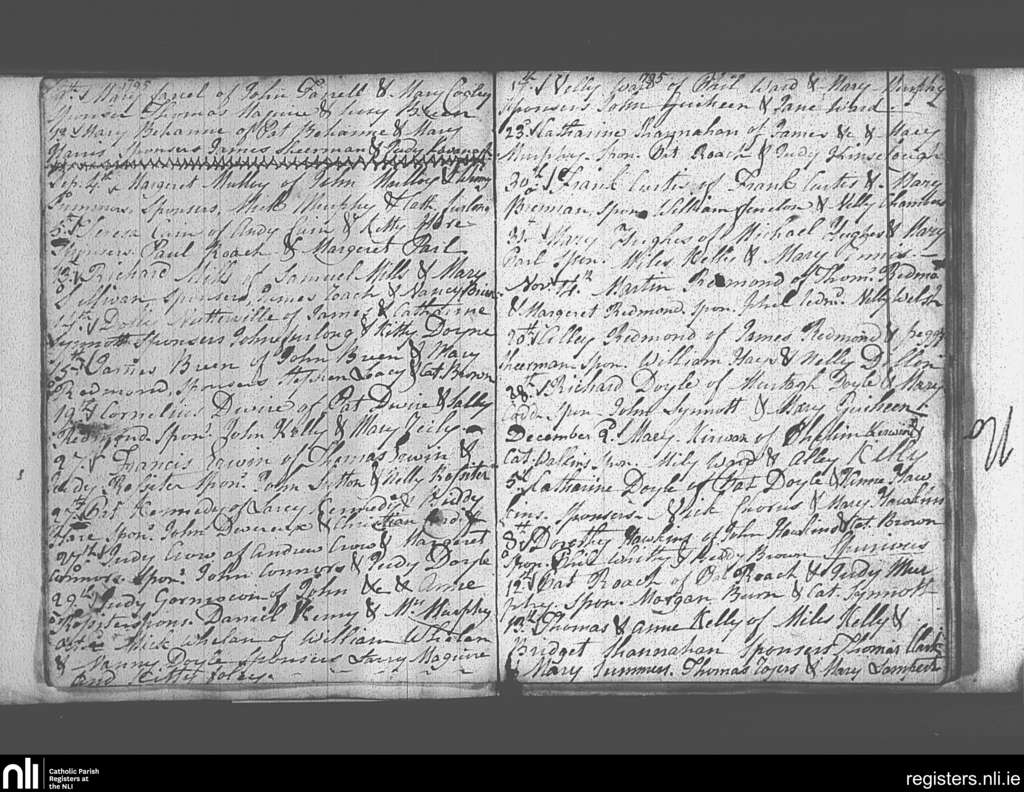 1795
Mary Farrel of John Farrell & Mary Cooley
Sponser Thomas Maguire & Lucy Breen
Mary Behanne of Pat Behanne & Mary
Sponsers James Sheerman & Judy Cavanagh
Sep. 4th Margeret Mulloy of John Mulloy &
Sponsers, Mick Murphy & Cath Furlong
5th Teresa Cuin of Andy Cuin & Kitty Hore
Sponsers Paul Roach & Margaret Parl
Richard Mills of Samuel Mills & Mary
Sullivan Sponsers, James Roach & Nancy
of James & Catharine
Synnott Sponsers John Furlong & Kitty Doyne
15th James Breen of John Breen & Mary
Redmond, Sponsers Stephen Leacy & Cat Brown
19th Cornelius Dwire of Pat Dwire & Sally
Redmond. Spon. John Kelly & Mary
27th Francis Erwin of Thomas Erwin &
Judy Rositer Spon. John Sutton & Nelly Rositer
Pat Kennedy of Larey Kennedy & Biddy
Hore Spon. John Devereux &
27th Judy Crow of Andrew Crow & Margaret
Connors Spon. John Connors & Judy Doyle
29th Judy Gormocan of John &c & Anne
Rositer spons. Daniel Kenny & Mrs Murphy
Mick Whelan of William Whelan
& Nanny Doyle Sponsers Larry Maguire
and Kitty Foley.
1795
Nelly Ward of Phil Ward & Mary Murphy
Sponsers John Guiheen & Jane Ward
23d Catharine Shaynahan of James &c & Mary
Murphy. Spon. Pat Roach & Judy Hinselough
30th Frank Curtis of Frank Curtis & Mary
Brenan, Spon. William Fenelon & Nelly Chambers
31st Mary Hughes of Michael Hughes & Mary
Parl Spon. Miles Kellie & Mary Ennis
Nov. 14th Martin Redmond of Thom. Redmond
& Margaret Redmond. Spon. Phil Redm. Nelly Welsh
20th Colley Redmond of James Redmond & Peggy
Sheerman. Spon. William Hays & Nelly Dillon
28th Richard Doyle of Murtagh Doyle & Mary
Codd. Spon. John Synnott & Mary Guiheen
December 2d Mary Kirwan of Phellim Kerwin &
Cat Dallins Spon. Mily Ward & Alley Kelly
5th Catharine Doyle of Pat Doyle & Winne Haw
kins. Sponsers. Nick & Mary Hawkins
8th Dorothy Hawkins of John Hawkins & Cat Brown
Spon. Phil Whitty & Biddy Brown Spurious
12th Pat Roach of Pat Roach & Judy Mur
phy. Spon. Morgan Burn & Cat. Synnott
13th Thomas & Anne Kelly of Miles Kelly &
Bridget Shannahan Sponsers Thomas Clark
& Mary Summers. Thomas Toyers & Mary Lambert
nli
Catholic Parish
Registers at
the NLI
registers.nli.ie